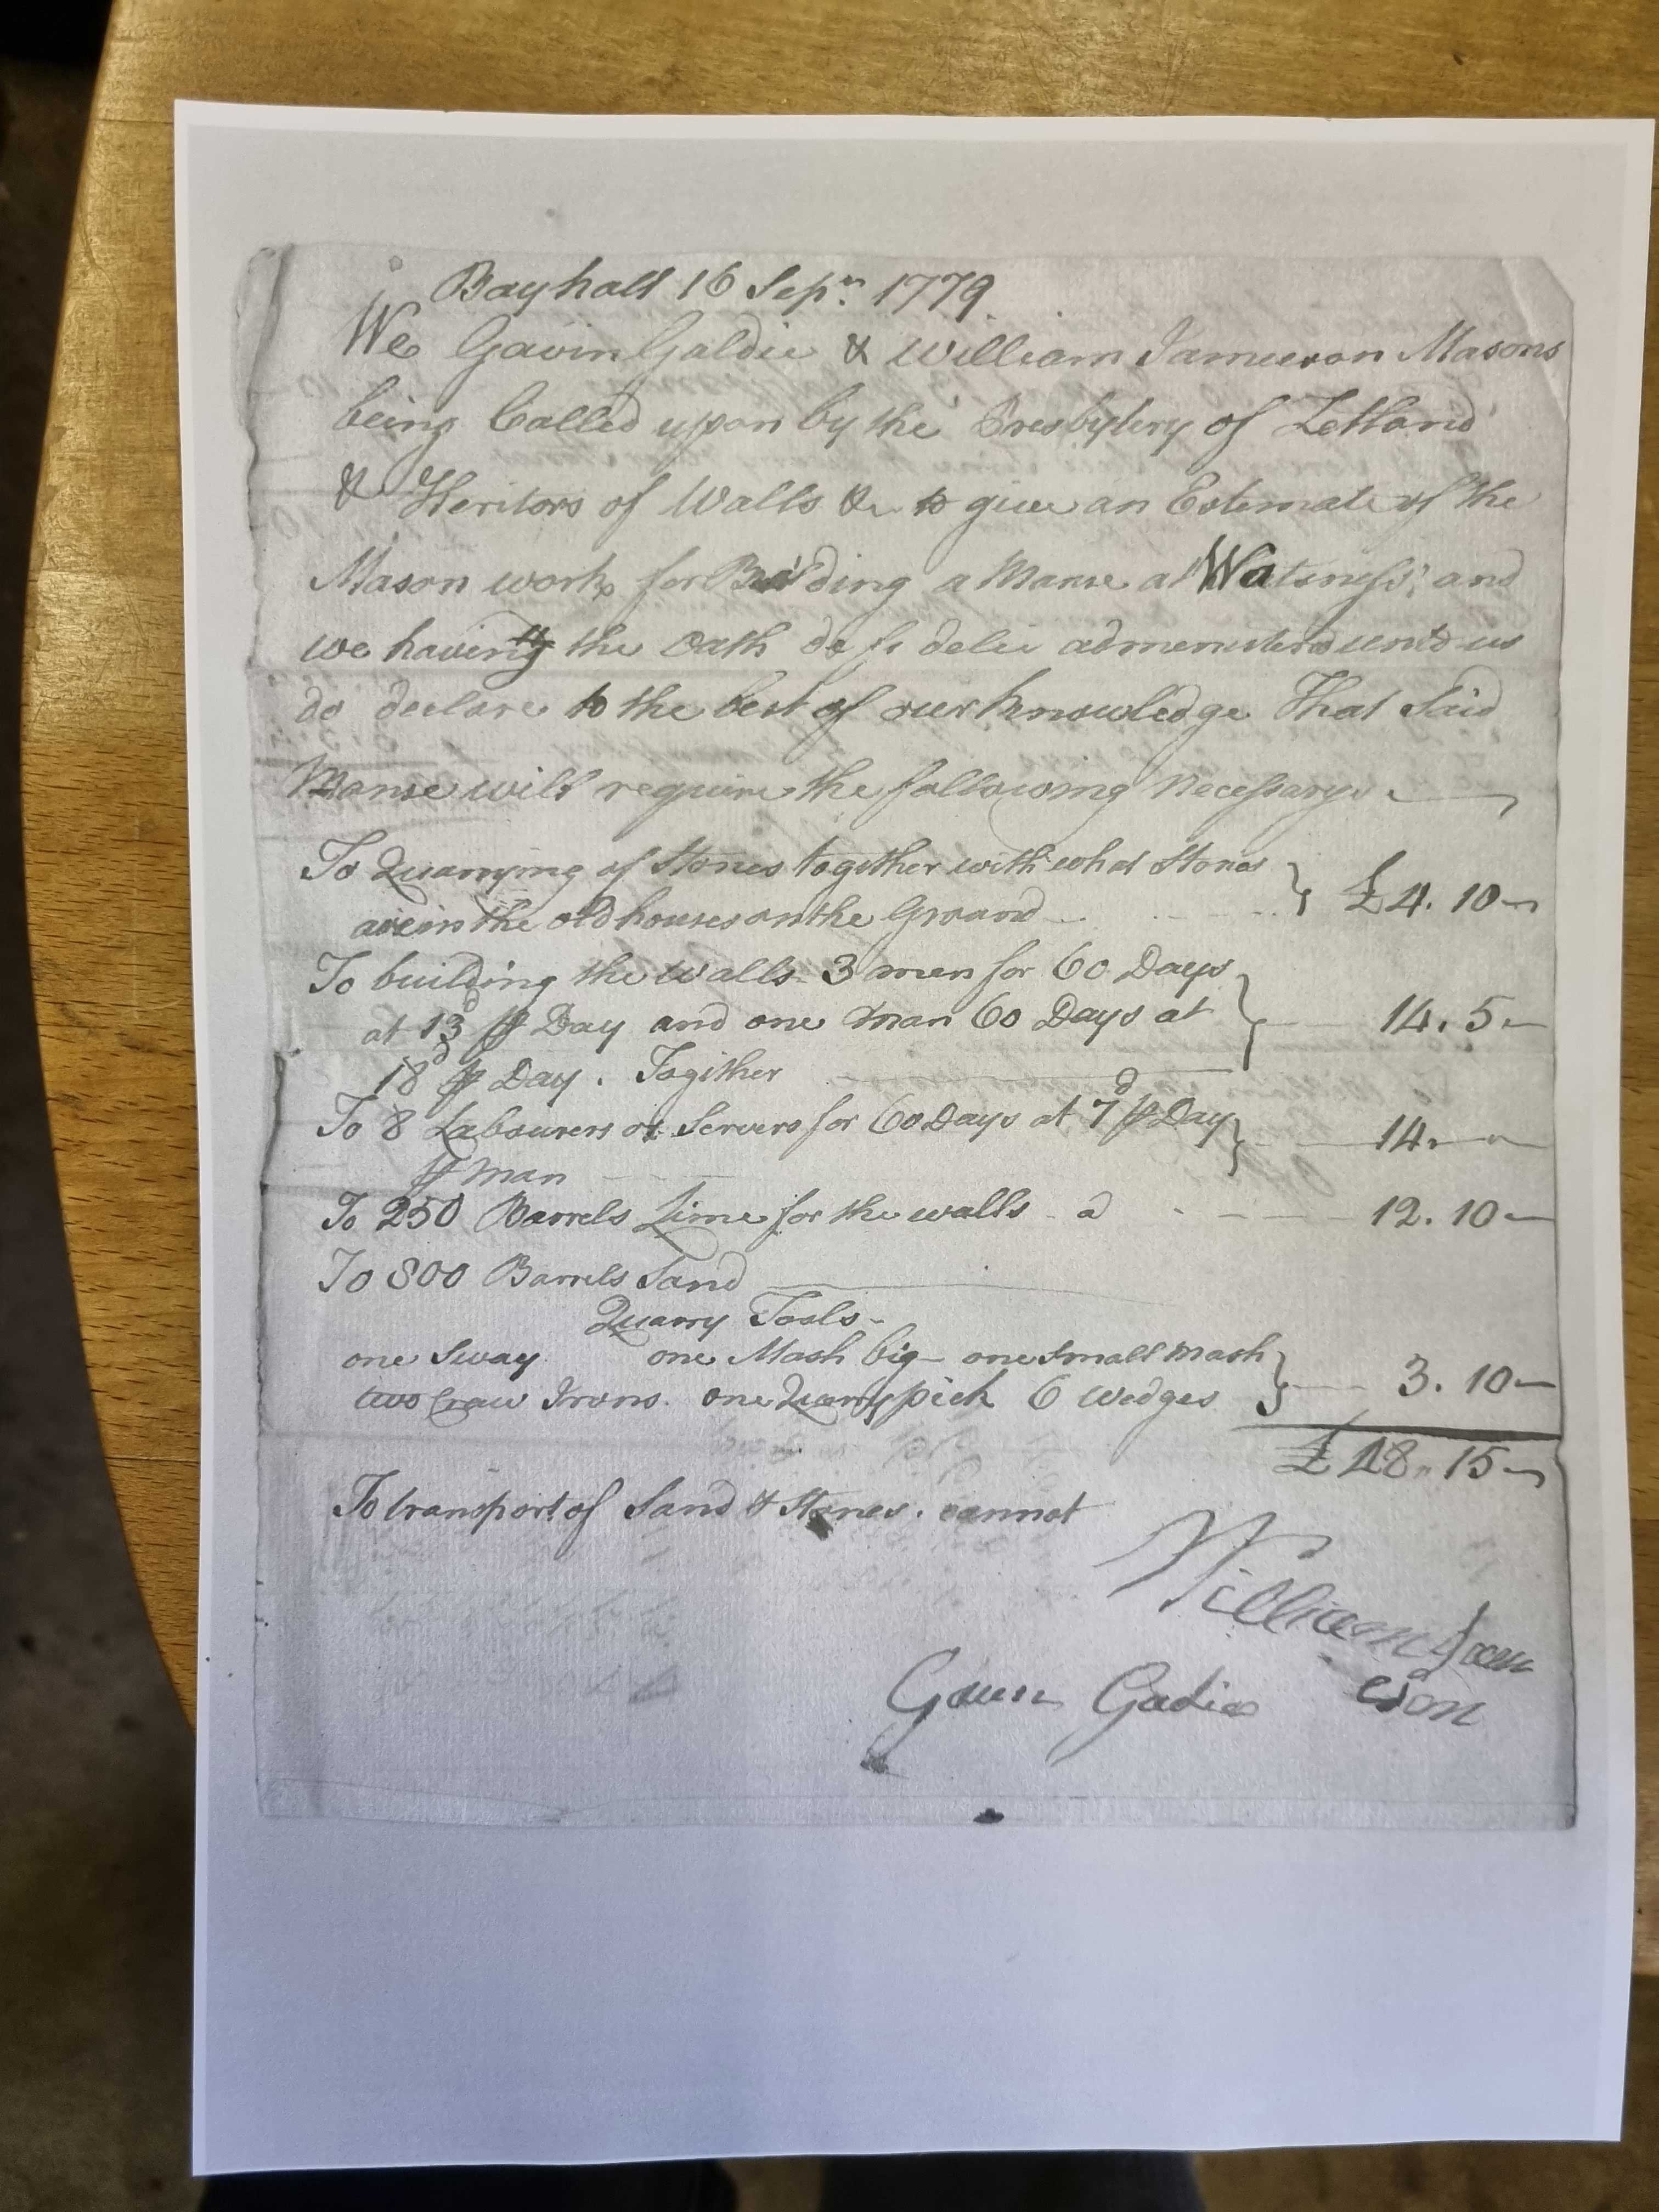 Bayhall 16 Sepr. 1779.
We Gavin Galdie & William Jameson Masons
being Called upon by the Presbytery of Zetland
& Heritors of Walls &c to give an Estemate of the
Mason work for Building a Manse at Watsness; and
we having the Oath de fideli admenisterd unto us
do declare to the best of our knowledge That Said
Manse will require the following Necessarys.
To Quarrying of Stones together with what Stones
are in the old houses on the Ground } £4. 10
To building the walls 3 men for 60 Days
at 13d ⅌ Day and one man 60 Days at } 14. 5
18d ⅌ Day. Togither
To 8 Labourers or Servers for 60 Days at 7d ⅌ Day } 14.
⅌ man
To 250 Barrels Lime for the walls a 12. 10
To 800 Barrels Sand
Quarry Tools
one Sway one Mash big one small mash
two Craw Irons. one Quarry pick 6 wedges } 3. 10
£ 48. 15
To transport of Sand & Stones. cannot
William Jam
eson
Gaun Gadie